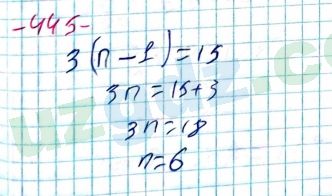 -445-
3(n-1)=15
3n=15+3
3n=18
n=6